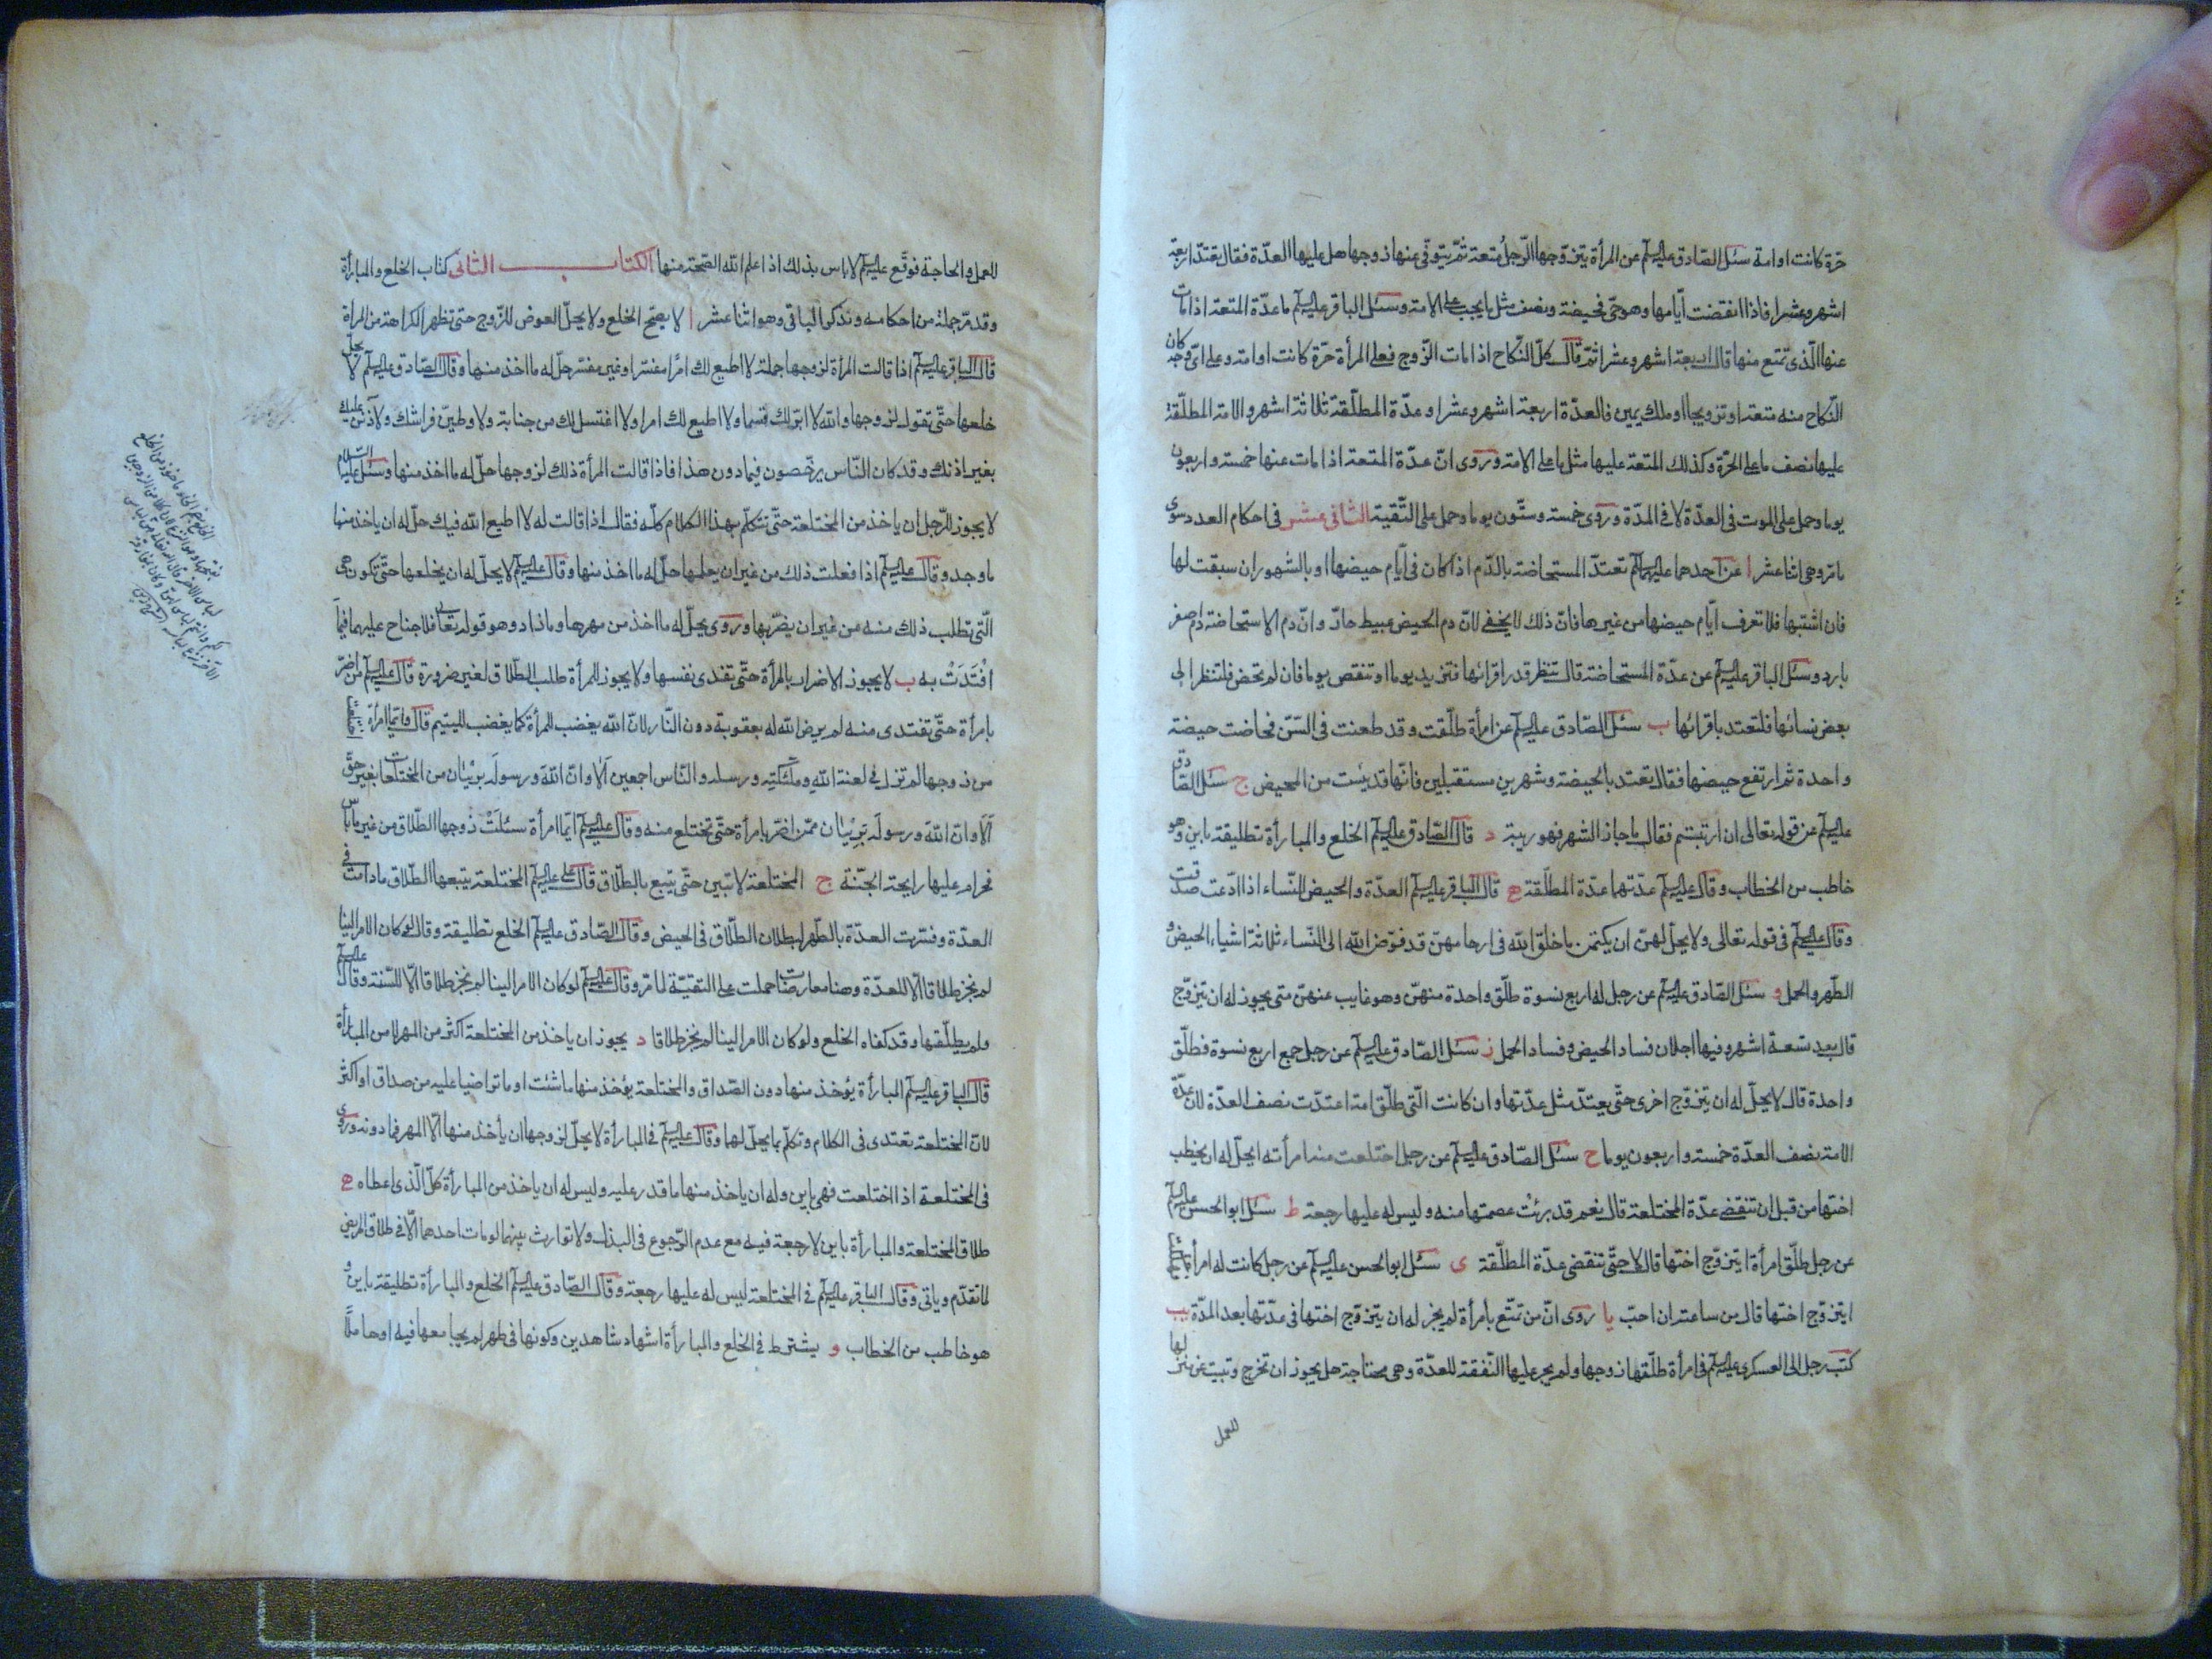 حرّة كانت او امة سئل الصّادق عليه السلم عن المرأة يتزوّجها الرّجل متعة ثمّ يتوفّى عنها زوجها هل عليها العدّة فقال تعتدّ اربعة
اشهر وعشرا فاذا انقضت ايّامها وهو حىّ فحيضة ونصف مثل ما يجب على الامة وسئل الباقر عليه السلم ما عدّة المتعة اذا مات
عنها الّذى تمتّع منها قال اربعة اشهر وعشرا ثمّ قال كلّ النّكاح اذا مات الزّوج فعلى المرأة حرّة كانت او امة وعلى اىّ وجه كان
النّكاح منه متعة او تزويجا او ملك يمين فالعدّة اربعة اشهر وعشرا وعدّة المطلّقة ثلاثة اشهر والامة المطلّقة
عليها نصف ما على الحرّة وكذلك المتعة عليها مثل ما على الامة وروى انّ عدّة المتعة اذا مات عنها خمسة واربعون
يوما وحمل على الموت فى العدّة لا فى المدّة وروى خمسة وستّون يوما وحمل على التّقية الثانى عشر فى احكام العدد سوى
ما مرّ وهى اثنا عشر ا عن احدهما عليهما السلم تعتدّ المستحاضة بالدّم اذا كان فى ايّام حيضها او بالشهور ان سبقت لها
فان اشتبها فلا تعرف ايّام حيضها من غيرها فانّ ذلك لا يخفى لانّ دم الحيض عبيط حارّ وانّ دم الاستحاضة دم اصفر
بارد وسئل الباقر عليه السلم عن عدّة المستحاضة قال تنظر قدر اقرائها فتزيد يوما او تنقص يوما فان لم تحض فلتنظر الى
بعض نسائها فلتعتد باقرائها ب سئل الصّادق عليه السلم عن امرأة طلّقت وقد طعنت فى السّن فحاضت حيضة
واحدة ثم ارتفع حيضها فقال تعتد بالحيضة وشهرين مستقبلين فانّها قد يئست من المحيض ج سئل الصّادق
عليه السلم عن قوله تعالى ان ارتبتم فقال ما جاز الشهر فهو ريبة د قال الصّادق عليه السلم الخلع والمبارأة تطليقة باين وهو
خاطب من الخطاب وقال عليه السلم عدّتها عدّة المطلّقة ه قال الباقر عليه السلم العدّة والحيض للنّساء اذا ادّعت صدقت
وقال عليه السلم فى قوله تعالى ولا يحلّ لهنّ ان يكتمن ما خلق الله فى ارحامهنّ قد فوّض الله الى النّساء ثلاثة اشياء الحيض و
الطّهر والحمل و سئل الصّادق عليه السلم عن رجل له اربع نسوة طلّق واحدة منهنّ وهو غايب عنهنّ متى يجوز له ان يتزوّج
قال بعد تسعة اشهر وفيها اجلان فساد الحيض وفساد الحمل ز سئل الصّادق عليه السلم عن رجل جمع اربع نسوة فطلّق
واحدة قال لا يحلّ له ان يتزوّج اخرى حتّى يعتدّ مثل عدّتها وان كانت الّتى طلّق امة اعتدّت نصف العدّة لانّ عدّة
الامة نصف العدّة خمسة واربعون يوما ح سئل الصّادق عليه السلم عن رجل اختلعت منه امرأته ايحلّ له ان يخطب
اختها من قبل ان تنقضى عدّة المختلعة قال نعم قد برئت عصمتها منه وليس له عليها رجعة ط سئل ابو الحسن عليه السلم
عن رجل طلّق امرأة ايتزوّج اختها قال لا حتّى تنقضى عدّة المطلّقة ى سئل ابو الحسن عليه السلم عن رجل كانت له امرأة
ايتزوّج اختها قال من ساعته ان احبّ يا روى انّ من تمتّع بامرأة لم يجز له ان يتزوّج اختها فى عدّتها بعد المدّة يب
كتب رجل الى العسكرى عليه السلم فى امرأة طلّقها زوجها ولم يجر عليها النّفقة للعدّة وهى محتاجة هل يجوز ان تخرج وتبيت عن منزلها
للعمل
للعمل والحاجة فوقّع عليه السلم لا باس بذلك اذا علم الله الصّحة منها الكتاب الثانى كتاب الخلع والمبارأة
وقد مرّ جملة من احكامه ونذكر الباقى وهو اثنا عشر ا لا يصحّ الخلع ولا يحلّ العوض للزّوج حتى تظهر الكراهة من المرأة
قال الباقر عليه السلم اذا قالت المرأة لزوجها جملة لا اطيع لك امرا مفسّرا وغير مفسّر حلّ له ما اخذ منها وقال الصّادق عليه السلم لا يحلّ
خلعها حتّى تقول لزوجها والله لا ابرّ لك قسما ولا اطيع لك امرا ولا اغتسل لك من جنابة ولاوطينّ فراشك ولآذننّ عليك
بغير اذنك وقد كان النّاس يرخّصون فيما دون هذا فاذا قالت المرأة ذلك لزوجها حلّ له ما اخذ منها وسئل عليه السلام
لا يجوز للرّجل ان ياخذ من المختلعة حتّى تتكلّم بهذا الكلام كلّه فقال اذا قالت له لا اطيع الله فيك حلّ له ان ياخذ منها
ما وجد وقال عليه السلم اذا فعلت ذلك من غير ان يعلمها حلّ له ما اخذ منها وقال عليه السلم لا يحلّ له ان يخلعها حتّى تكون هى
الّتى تطلب ذلك منه من غير ان يضرّ بها وروى يحلّ له ما اخذ من مهرها وما زاد وهو قوله تعالى فلا جناح عليهما فيما
افْتَدَتْ به ب لا يجوز الاضرار بالمرأة حتّى تفتدى نفسها ولا يجوز للمرأة طلب الطّلاق لغير ضرورة قال عليه السلم من اضرّ
بامرأة حتّى تفتدى منه لم يرض الله له بعقوبة دون النّار لانّ الله يغضب للمرأة كما يغضب لليتيم قال وايّما امرأة
من زوجها لم تزل فى لعنة الله وملئكته ورسله والنّاس اجمعين اَلا وانّ اللهَ ورسولَه بريئان من المختلعات بغير حقّ
اَلاَ وانّ اللهَ ورسولَه بَرِيْئان ممّن اضرّ بامرأة حتّى تختلع منه وقال عليه السلم ايّما امرأة سئلَتْ زوجها الطّلاق من غير باس
فحرام عليها رايحة الجنّة ج المختلعة لا تبين حتّى يتبع بالطّلاق قال على عليه السلم المختلعة يتبعها الطّلاق ما دامت فى
العدّة وفسّرت العدّة بالطّهر لبطلان الطّلاق فى الحيض وقال الصّادق عليه السلم الخلع تطليقة وقال لو كان الامر الينا
لم نجز طلاقا الّا للعدّة وهنا معارضات حملت على التقيّة لما مرّ وقال عليه السلم لو كان الامر الينا لم نجز طلاقا الّا للسّنة وقال عليه السلم
ولم يطلّقها وقد كفاه الخلع ولو كان الامر الينا لم نجز طلاقا د يجوز ان ياخذ من المختلعة اكثر من المهر لا من المبارأة
قال الباقر عليه السلم المبارأة يؤخذ منها دون الصّداق والمختلعة يؤخذ منها ما شئت او ما تراضيا عليه من صداق او اكثر
لانّ المختلعة تعتدى فى الكلام وتكلّم بما يحلّ لها وقال عليه السلم فى المبارأة لا يحلّ لزوجها ان يأخذ منها الّا المهر فما دونه وروى
فى المختلعة اذا اختلعت فهى باين وله ان ياخذ منها ما قدر عليه وليس له ان ياخذ من المبارأة كلّ الّذى اعطاه ه
طلاق المختلعة والمبارأة باين لا رجعة فيه مع عدم الرّجوع فى البذل ولا توارث بينهما لو مات احدهما الّا فى طلاق المريض
لما تقدّم وياتى وقال الباقر عليه السلم فى المختلعة ليس له عليها رجعة وقال الصّادق عليه السلم الخلع والمبارأة تطليقة باين و
هو خاطب من الخطاب و يشترط فى الخلع والمبارأة اشهاد شاهدين وكونها فى طهر لم يجامعها فيه او حاملًا